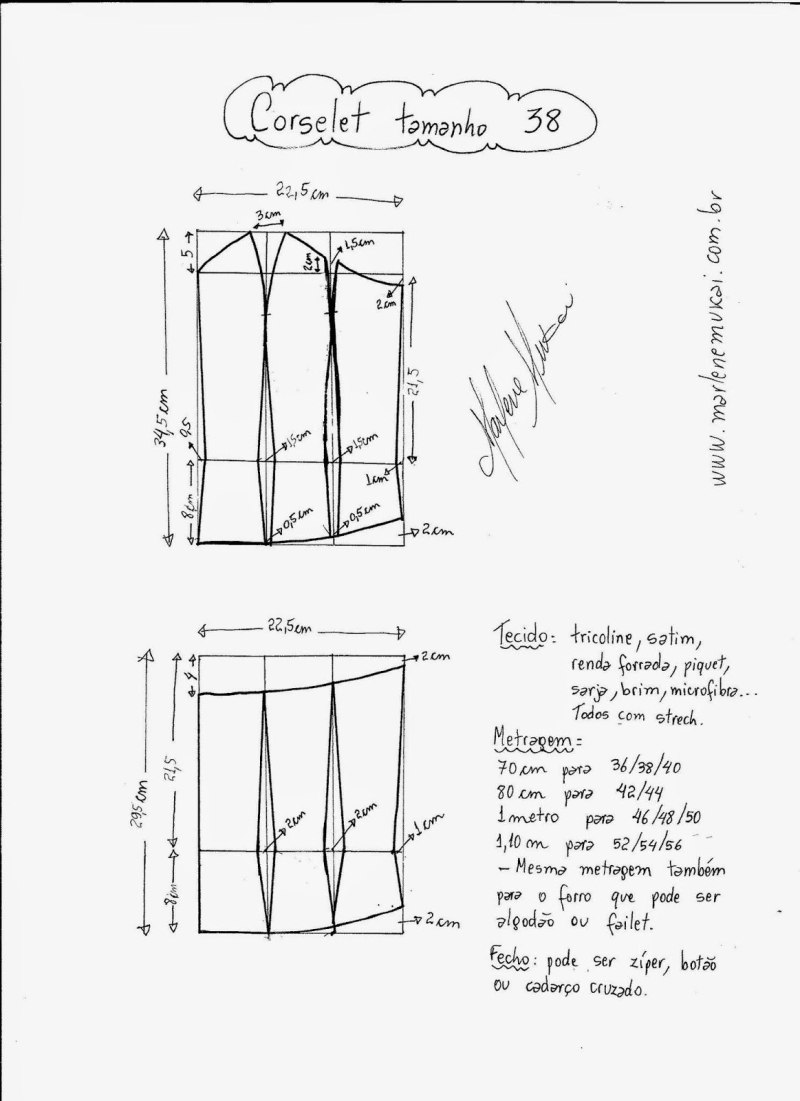 Corselet tamanho 38
22,5 cm
3 cm
5
1,5cm
2cm
2cm
34,5 cm
21,5
0,5
1,5cm
1,5cm
1cm
8cm
0,5cm
0,5cm
2cm
Marlene Mukai
www.marlenemukai.com.br
22,5cm
2cm
4
21,5
29,5cm
2cm
2cm
1cm
8cm
2cm
Tecido: tricoline, satim,
renda forrada, piquet,
sarja, brim, microfibra...
Todos com strech.
Metragem:
70cm para 36/38/40
80 cm para 42/44
1 metro para 46/48/50
1,10 m para 52/54/56
- Mesma metragem também
para o forro que pode ser
algodão ou failet.
Fecho: pode ser zíper, botão
ou cadarço cruzado.